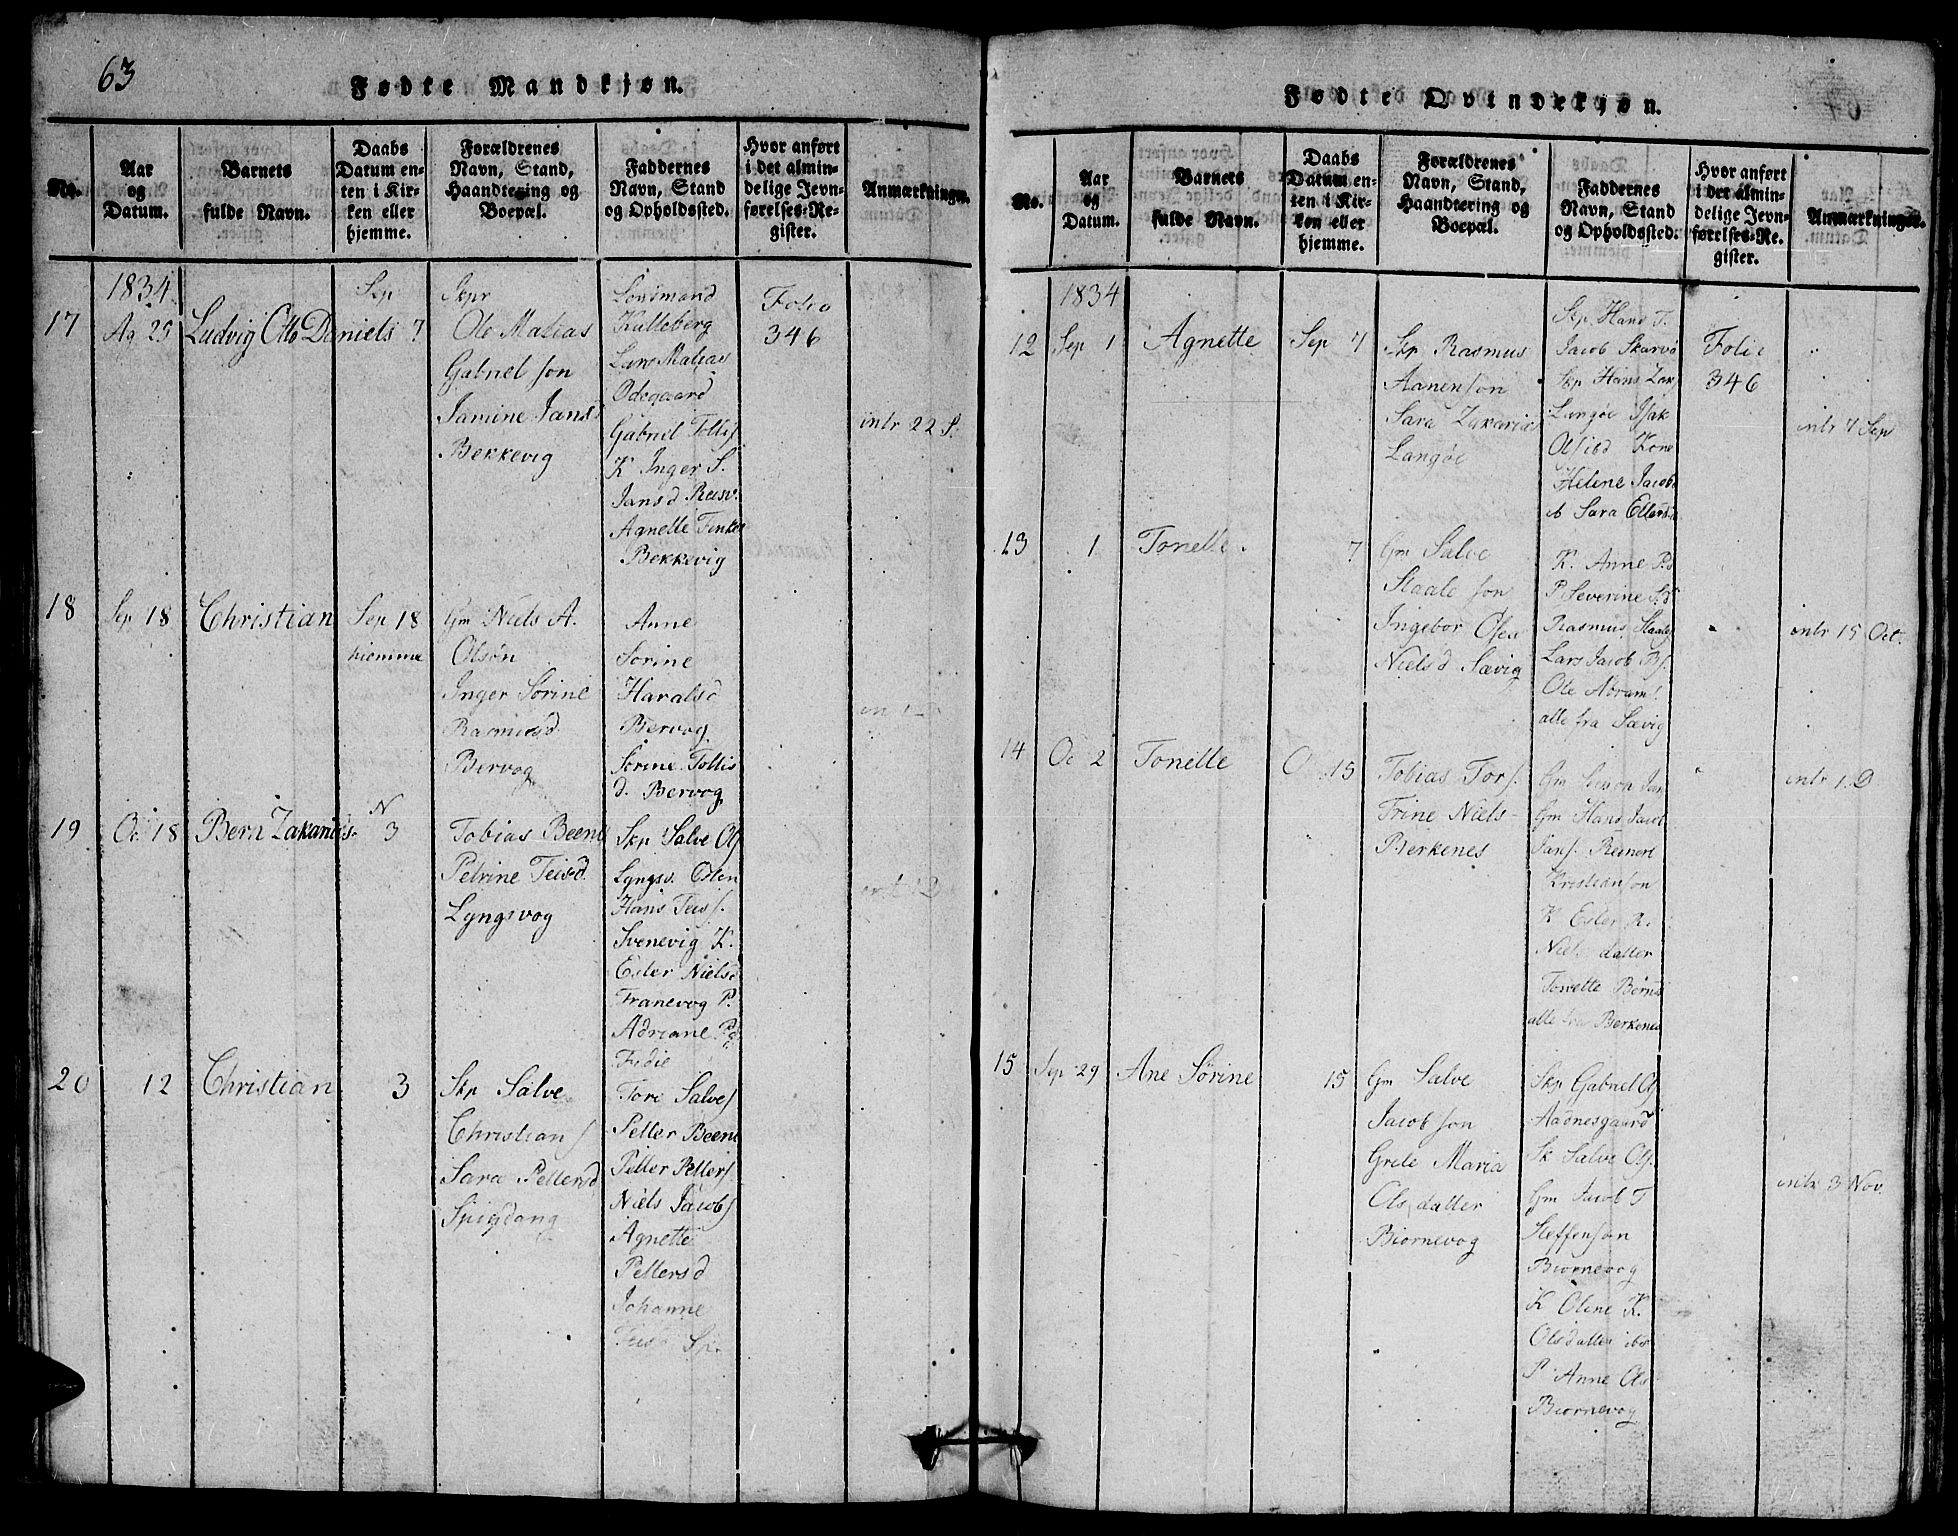 63
Fødte Mandkjøn.
No.
Aar
og
Datum.
Barnets
fulde Navn.
Daabs
Datum en-
ten i Kir-
ken eller
hjemme.
Forældrenes
Navn, Stand,
Haandtering og
Boepæl.
Faddernes
Navn, Stand
og Opholdssted.
Hvor anført
i det almin-
delige Jevn-
førelses-Re-
gister.
Anmærkninger.
1834
17
Ag 25
Ludvig Otto Daniels
Sep
7
Skpr
Ole Matias
Gabriel son
Jamine Jans
Bekkevig
Lonsmand
Kulleberg
Lars Matias
Odegaard
Gabriel Tollis
K Inger S.
Jansd Reisv.
Agnette
Bekkevig
Folio
346
intr 22 S.
18
Sep 18
Christian
Sep 18
hiemme
Gm Niels A.
Olsøn
Inger Sorine
Rasmusd
Bervog
Anne
Sorine
Haralsd
Bervog
Sorine Tollis
d. Bervog
19
Oc 18
Bern Zakarias
N
3
Tobias Beens
Petrine Teisd.
Lyngsvog
Skp Salve Ols
Lyngsv. Osten
Hans Teiss.
Svenevig K.
Ester Nielsd
Franevog P.
Adriane Pd
Fidie
20
12
Christian
3
Skp Salve
Christians
Sara Pettersd
Tore Salves
Petter Beens
Petter Petters
Niels Jacobs
Agnette
Pettersd
Johanne
Fødte Qvindekjøn.
No.
Aar
og
Datum.
Barnets
fulde Navn.
Daabs
Datum en-
ten i Kir-
ken eller
hjemme.
Forældrenes
Navn, Stand,
Haandtering og
Boepæl.
Faddernes
Navn, Stand
og Opholdssted.
Hvor anført
i det almin-
delige Jevn-
førelses-Re-
gister.
Anmærkninger.
1834
12
Sep 1
Agnette
Sep 7
Skp Rasmus
Aanenson
Sara Zakarias
Langøe
Skp Hans T.
Jacob Skarvø
Skp Hans Zak
Langøe Isak
Ols ibd Kone
Helene Jacob.
Sara Ellersd
Folie
346
intr 7 Sep
13
1
Tonette
7
Gm Salve
Staale son
Ingebor Osea
Nielsd Sævig
K. Anne P.d
P Severine S.d
Rasmus Staales
Lars Jacob Bs.
Ole Abram
alle fra Sævig
intr 15 Oct.
14
Oc 2
Tonette
O 15
Tobias Tors.
Trine Niels-
Berkenes
Gm Simon Jan
Gm Hans Jacob
Jans. Reinert
Kristianson
K Ester R.
Niels datter
Tonette Børns
alle fra Berkenes
intr 1. D
15
Sep 29
Ane Sørine
15
Gm Salve
Jacob son
Grete Maria
Ols datter
Biornevog
Skp Gabriel Os
Aadnesgaard
Sk Salve Ols.
Gm Jacob T
Steffenson
Biornevog
K Oline K.
Olsdatter ibs
P Anne Ols
Biornevog
intr 3 Nov.